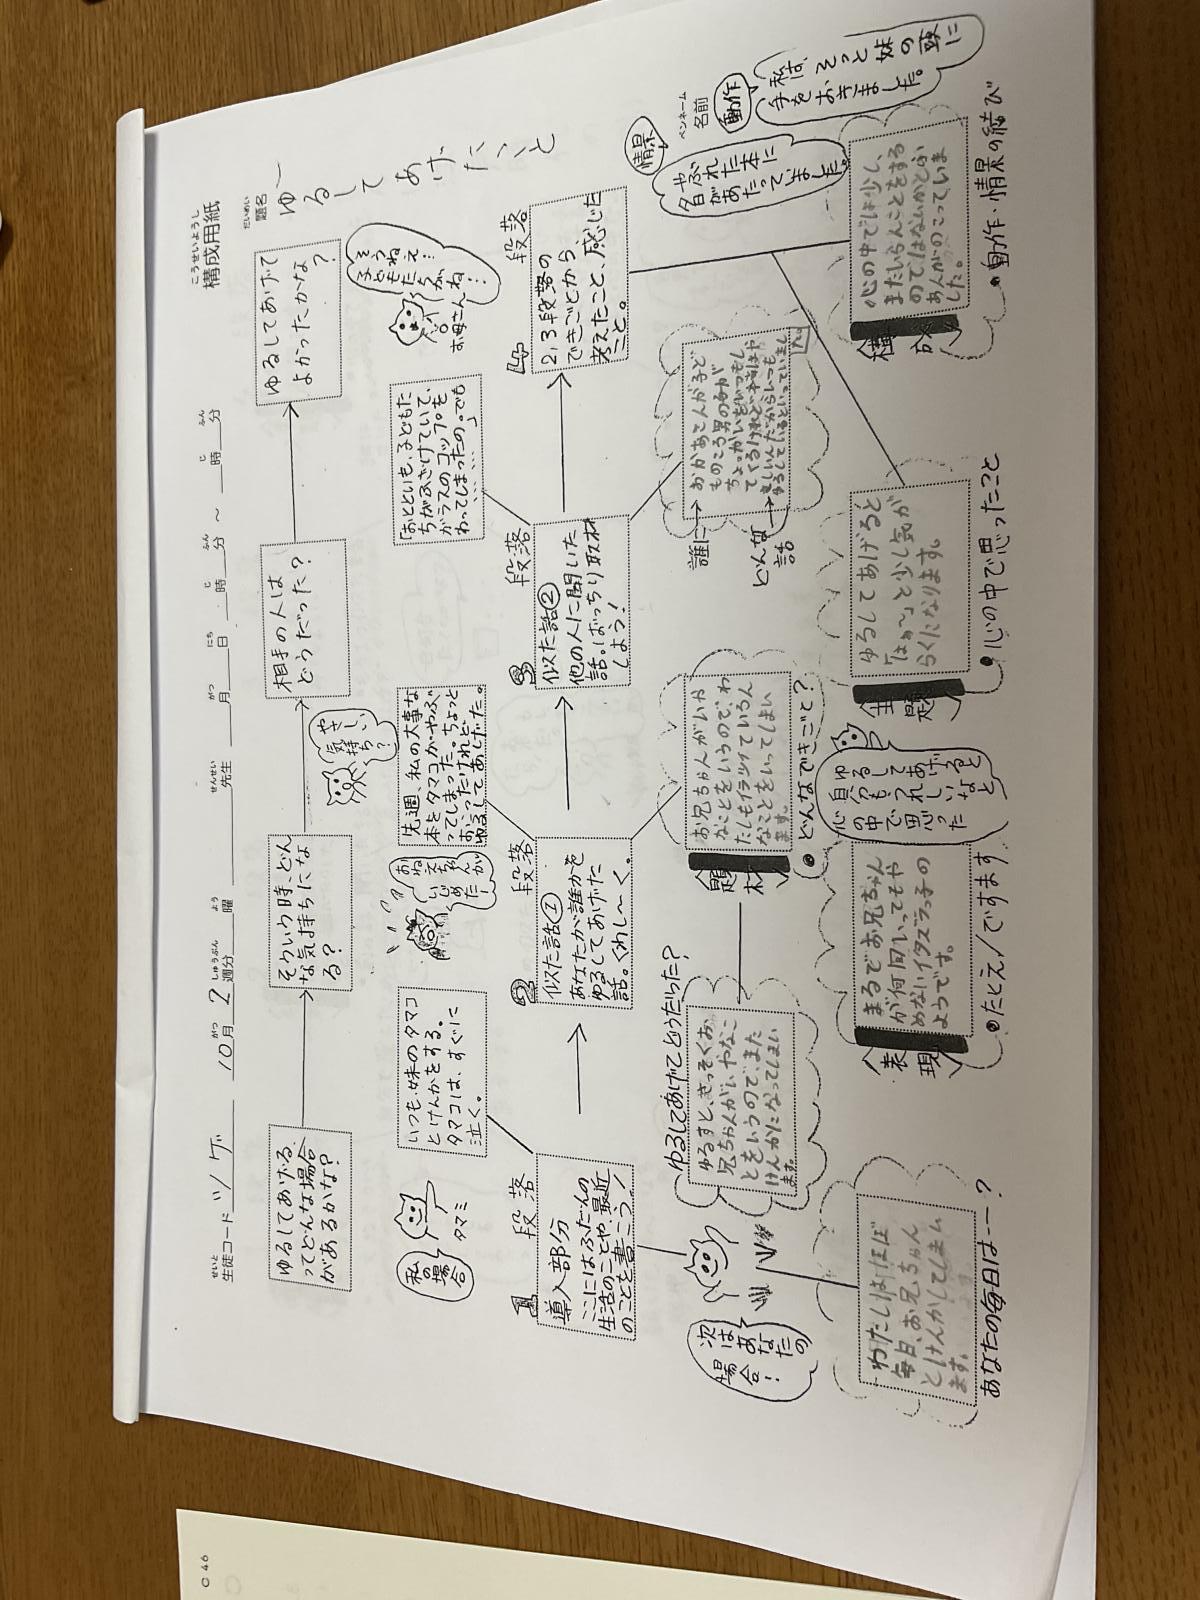 こうせいようし
構成用紙
だいめい
題名
ゆるしてあげたこと
ペンネーム
名前
せいと
生徒コード ツゲ 10月2週分 曜 先生 月 日 時 分 ~ 時 分
ゆるしてあげる
ってどんな場合
があるかな?
そういう時、どん
な気持ちにな
る?
やさしい
気持ち?
相手の人は
どうだった?
ゆるしてあげて
よかったかな
?
私の
場合
タマミ
いつも、妹のタマコ
とけんかをする。
タマコは、すぐに
泣く。
おねえちゃんが
いじめた!
先週、私の大事な
本をタマコがやぶ
ってしまった。ちょっと
おこったけれど、
ゆるしてあげました。
「おとといも、子どもた
ちがふざけていて、
ガラスのコップを
わってしまったの。でも
……………」
お母さん
1 段落
導入部分
ここにはふだんの
生活のことや、最近
のことを書こう!
2 段落
似た話①
あなたが誰かを
ゆるしてあげた
話。くわし~く。
3 段落
似た話②
他の人に聞いた
話。ばっちり取材
しよう!
4 段落
2,3段落の
できごとから、
考えたこと、感じた
こと。
情景
夕日がやぶれた本に
あたっていました。
動作
私は、そっと妹の頭に
手をおきました。
次は
あなたの
場合!
ゆるしてあげてどうだった?
ゆるすと、さっそくお
兄ちゃんがいやなこ
とをいうので、また
けんかになってしまい
ます。
題材
お兄ちゃんがいや
なことをいうので、わ
たしもイラついていろん
なことをいってしまい
ます。
●どんなできごと?
誰に→
どんな話→
おかあさんが子ど
ものころ男の子が
ちょっかいをいつもし
てくるけれど
あなたの毎日は――?
わたしはほぼ
毎日、お兄ちゃん
とけんかしてしまい
ます。
表現
まるでお兄ちゃん
が何回いってもや
めないイタズラっ子の
ようです。
●たとえ/ですます
ゆるしてあげると
自分もうれしいなと
心の中で思った
主題
ゆるしてあげると
「はぁ~」と少し気が
らくになります。
●心の中で思ったこと
構成
心の中では少し、
またいらんことをする
のではないかとふ
あんがのこっていま
した。
●動作・情景の結び
C 46